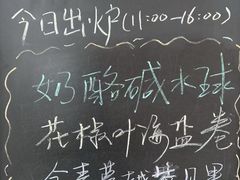 今日出炉(11:00-16:00)
奶酪碱水球
花椒叶海盐卷